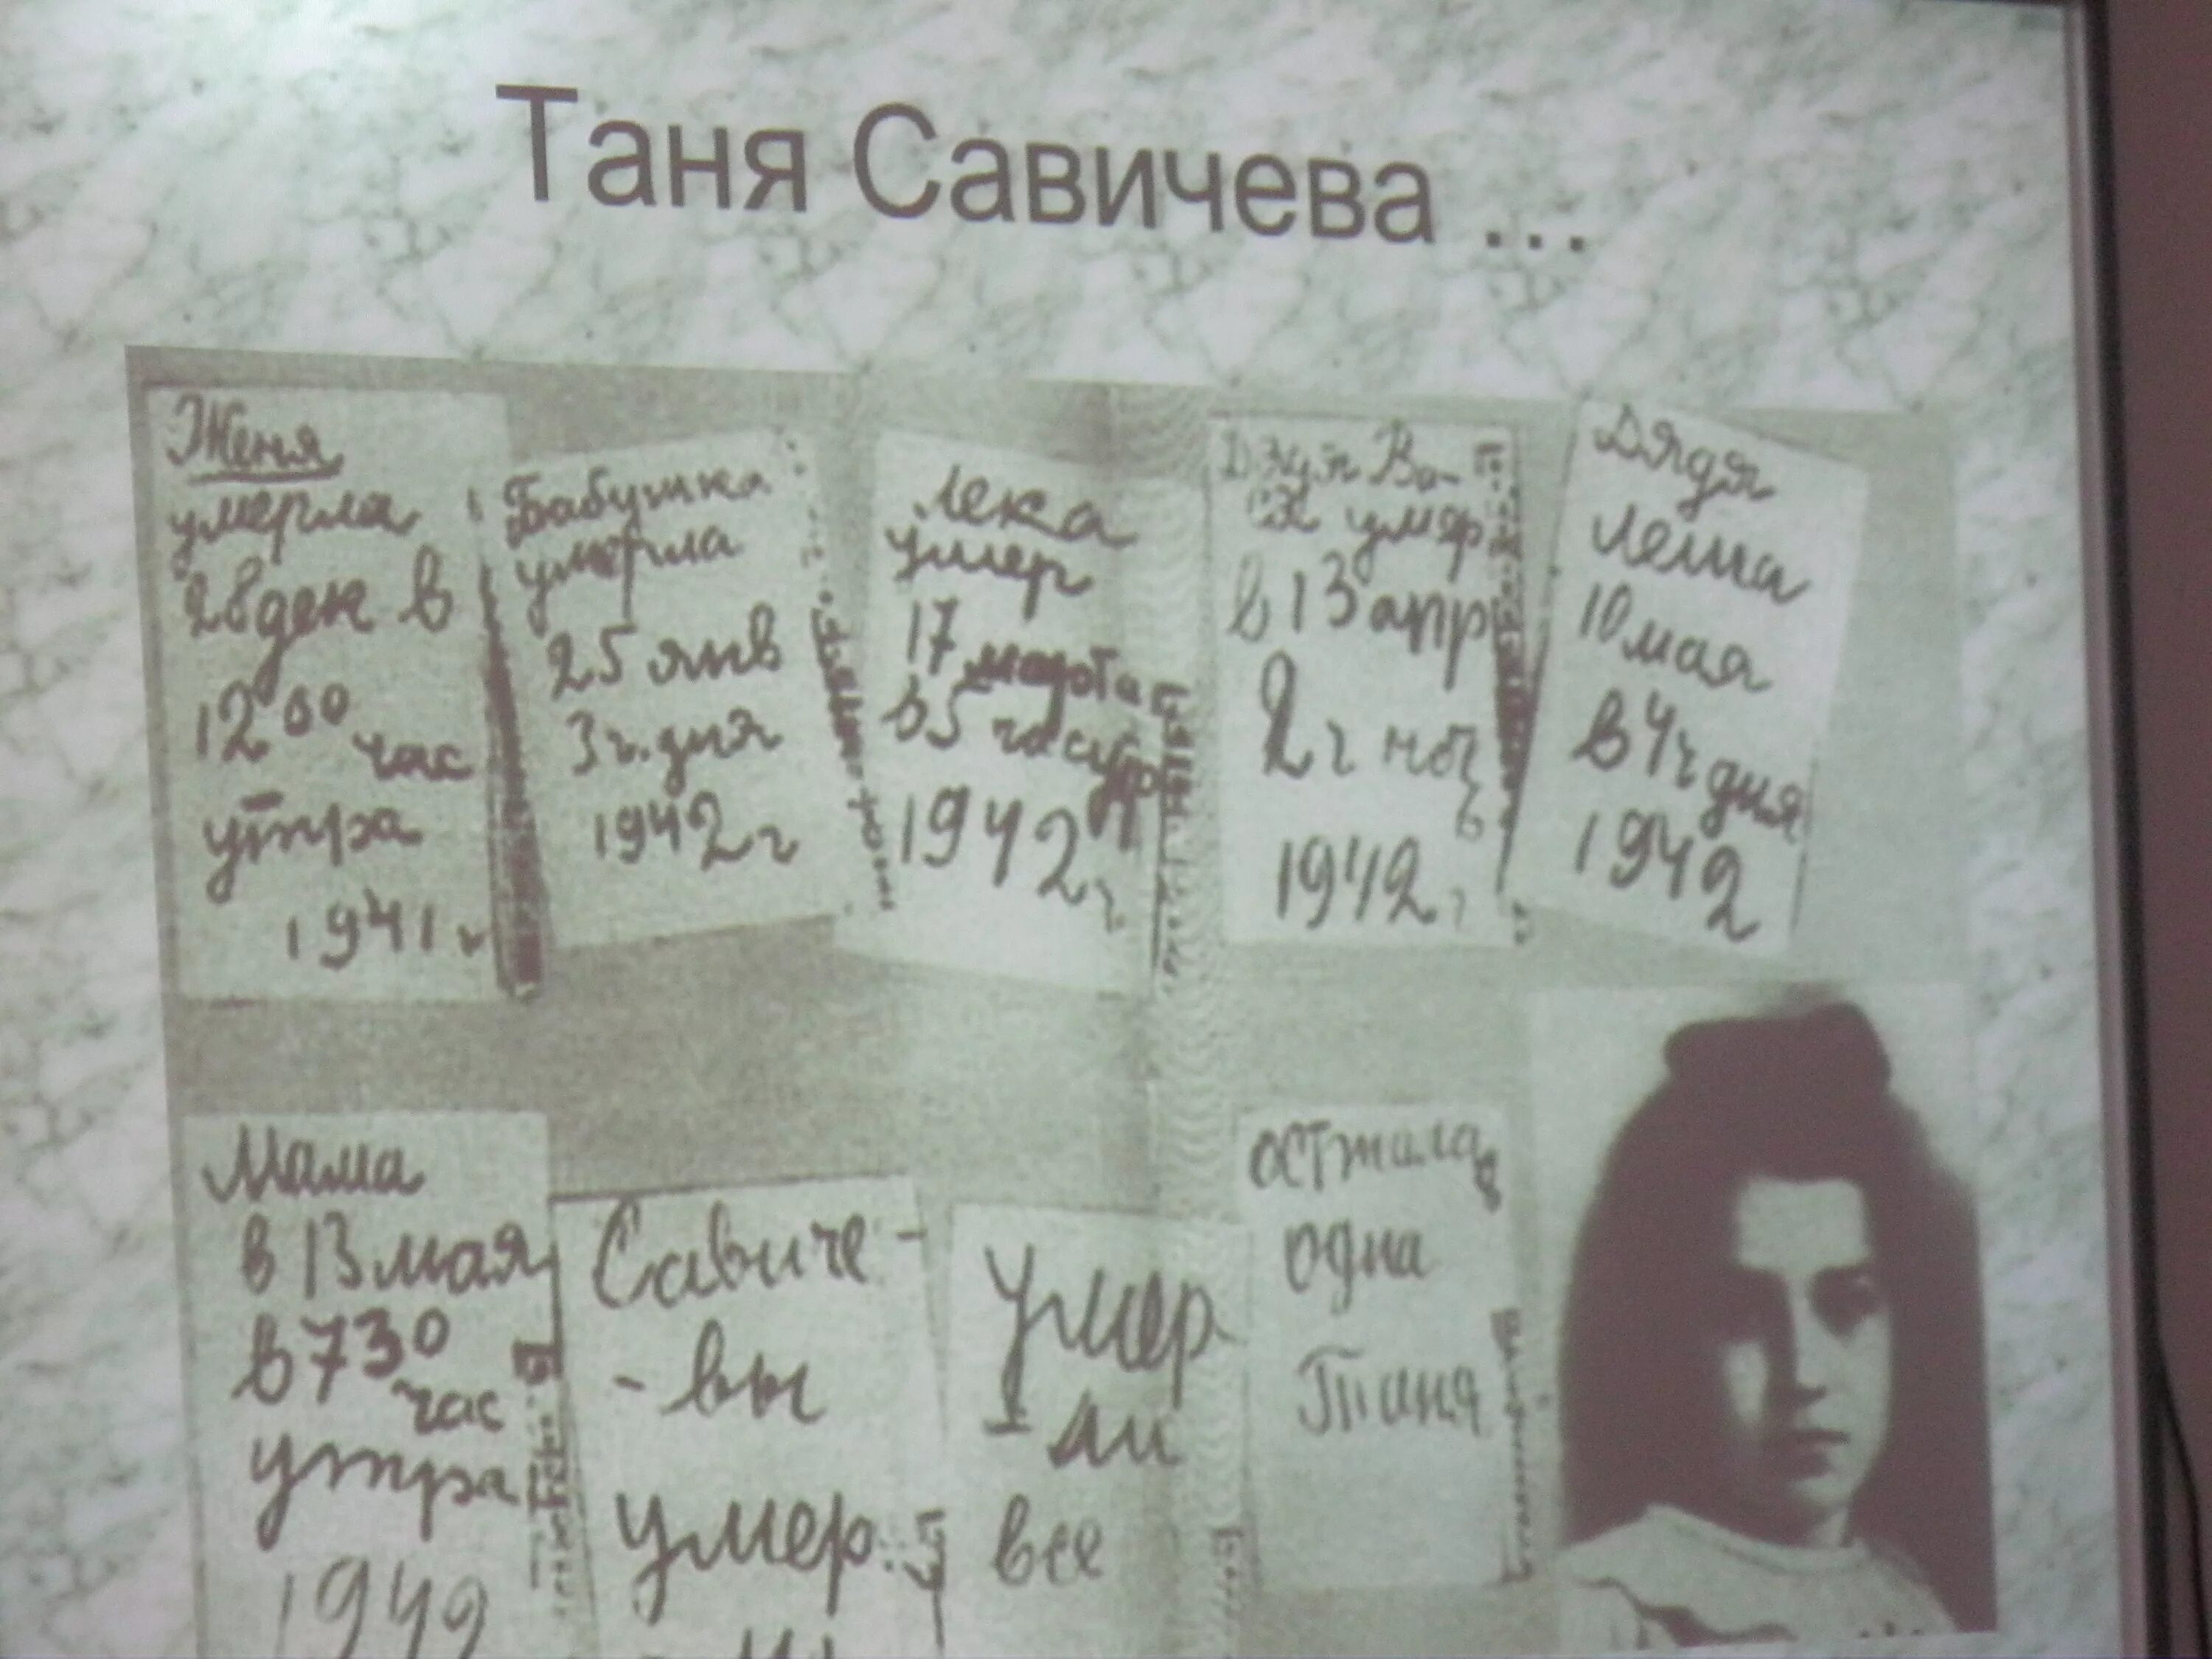 Таня Савичева ...
Женя
умерла
28 ден в
12 00 час
утра
1941 г
Бабушка
умерла
25 янв
3 ч. дня
1942 г
Лека
умер
17 марта
в 5 час утр
1942 г
Дядя Ва-
ся умер
в 13 апр
2 ч ноч
ь
1942 г
Дядя
Леша
10 мая
в 4 ч дня
1942
Мама
в 13 мая
в 7 30
час
утра
1942
Савиче-
-вы
умер
Умер
-ли
все
Осталась
одна
Таня